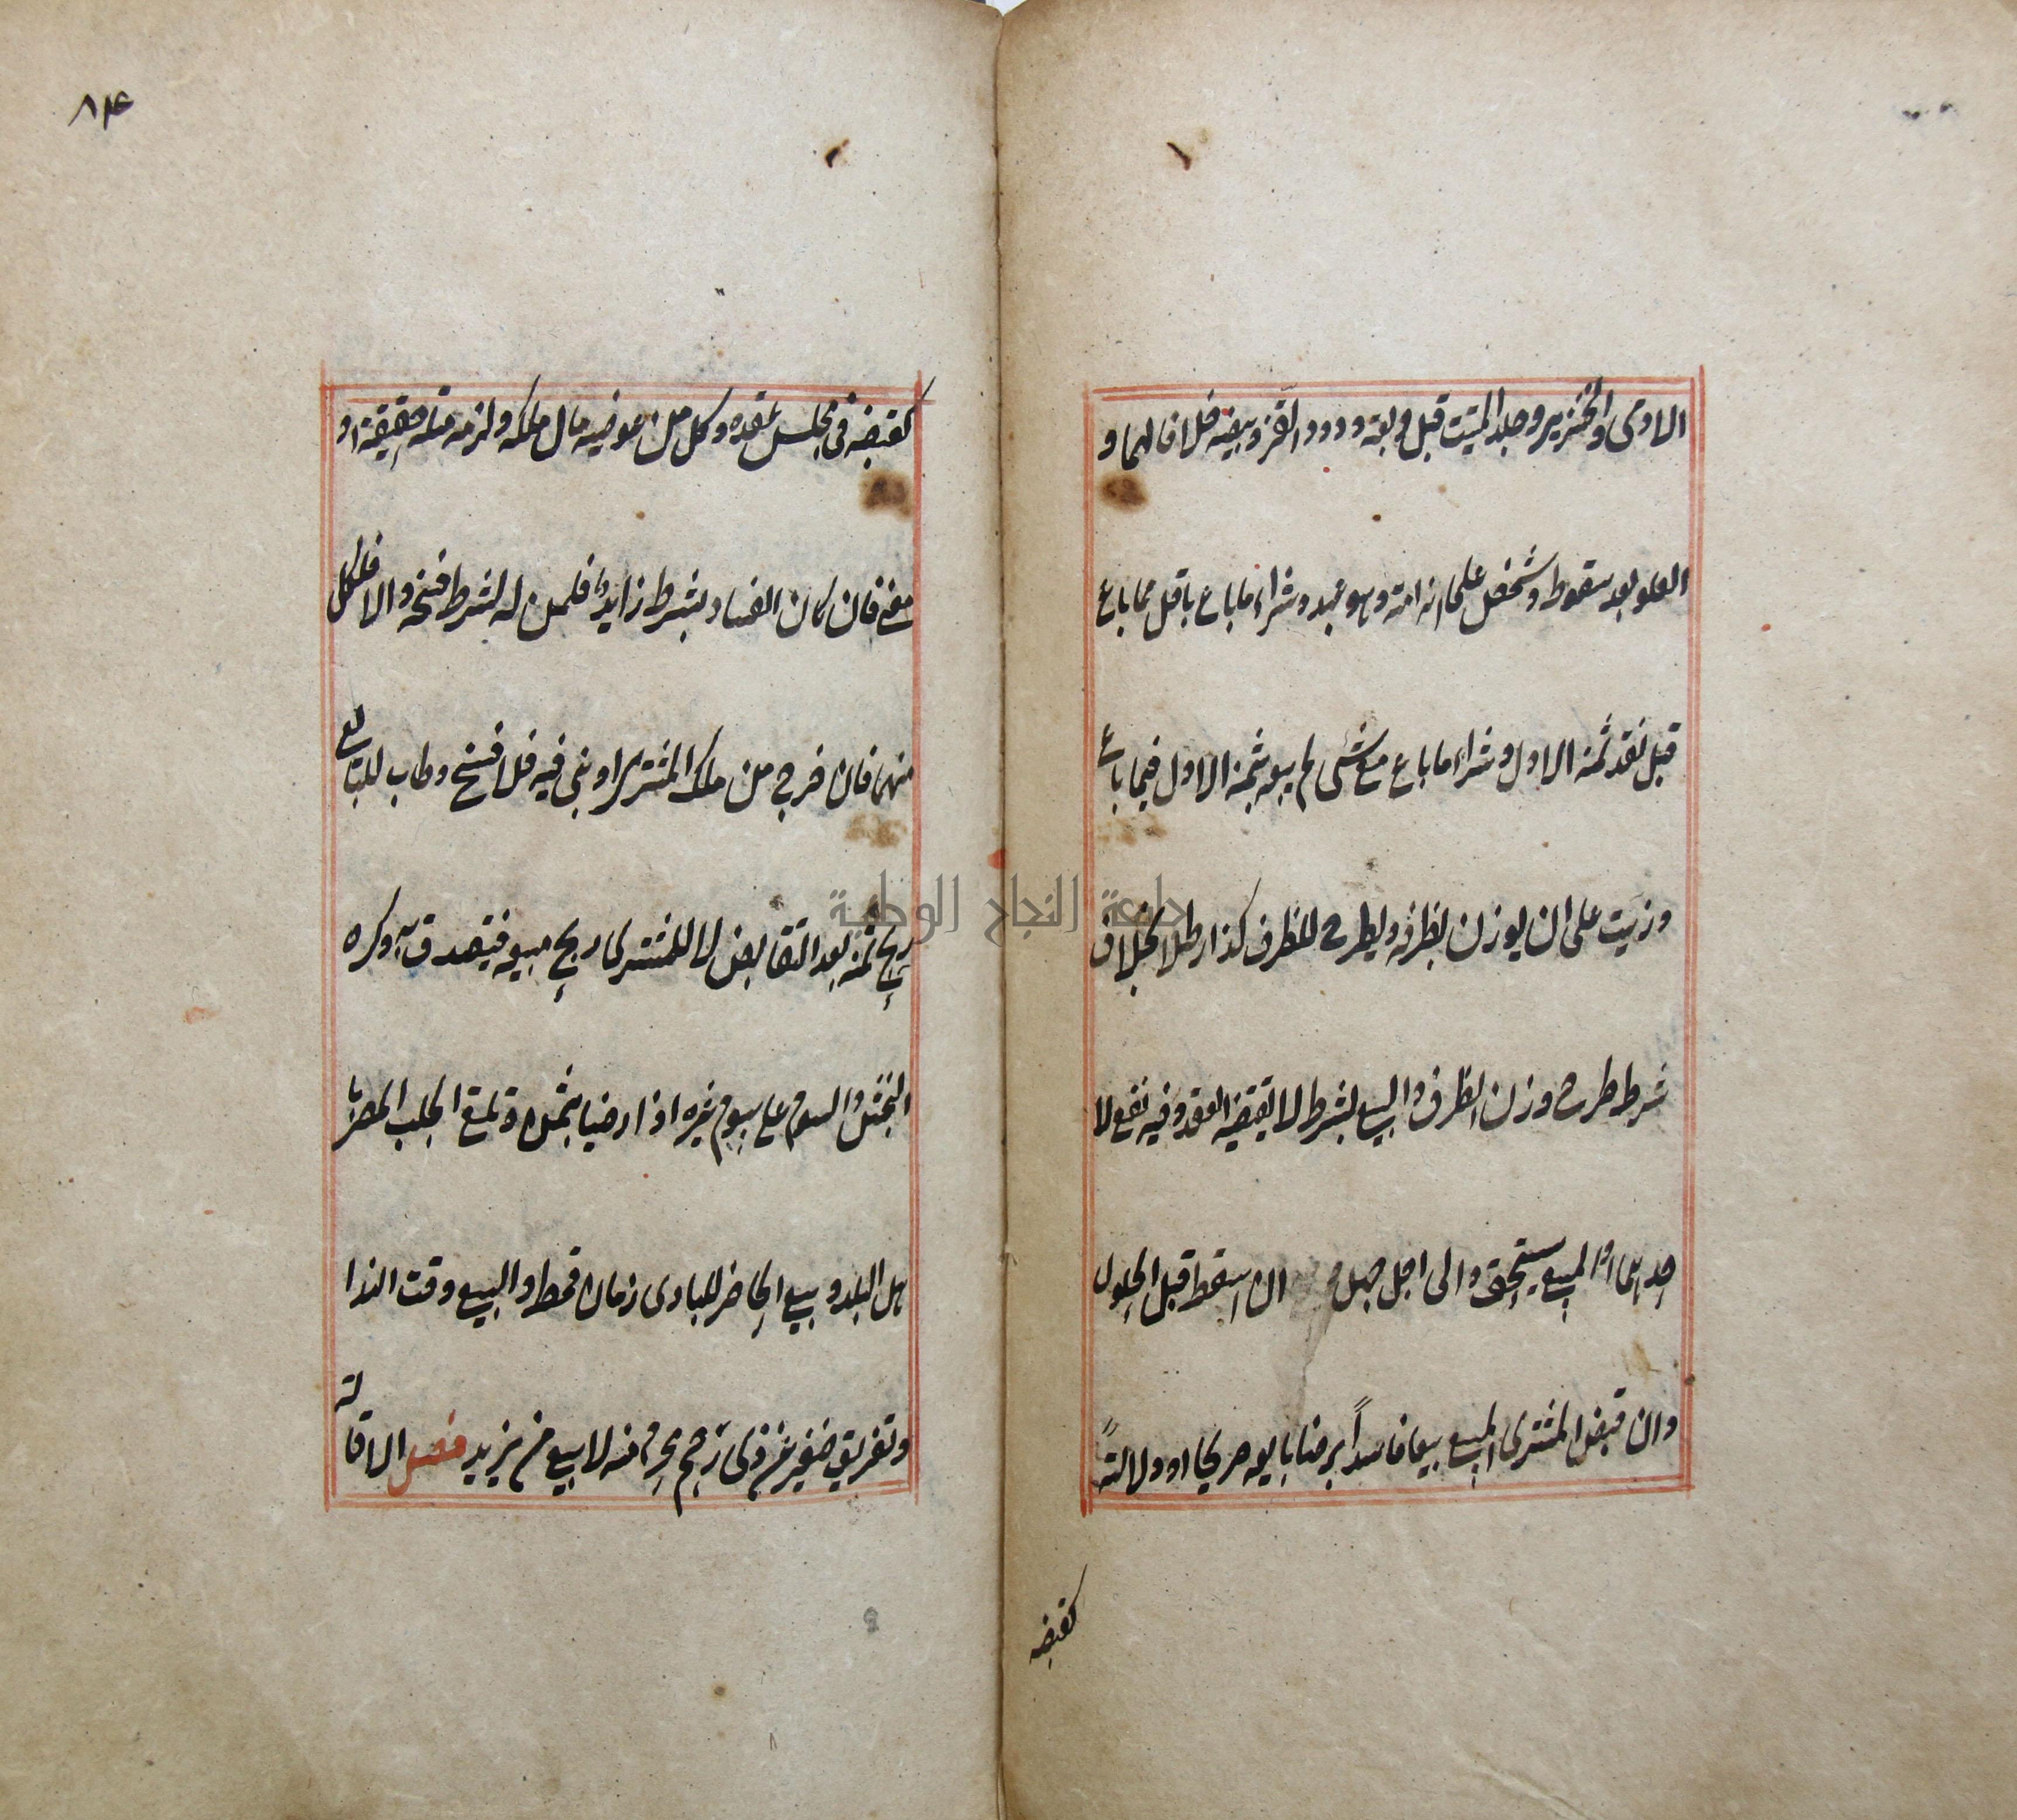 الادمى والخنزير وجلد الميت قبل دبغه ودود القز وبيضه خلافا لهما و
العلو بعد سقوط وشخص على انه امة وهو عبد وشراء ما باع باقل مما باع
قبل نقد ثمنه الاول وشراء ما باع مع شئ لم يبعه بثمنه الاول فيما باع
وزيت على ان يوزن بظرفه ويطرح للظرف كذا رطلا بخلاف
شرط طرح وزن الظرف والبيع بشرط لا يقتضيه العقد وفيه نفع لا
حدهما او لمبيع يستحق والى اجل جهل ان اسقط قبل الحلول
وان قبض المشترى المبيع بيعا فاسداً برضا بايعه صريحا او دلالةً
كقبضه
٨٤
كقبضه فى مجلس عقده وكل من عوضيه مال ملكه ولزمه مثله حقيقة او
معنى فان كان الفساد بشرط زايد فلمن له الشرط فسخه والا فلكل
منهما فان خرج من ملك المشترى او بنى فيه فلا فسخ وطاب للبايع
ربح ثمنه بعد التقابض لا للمشترى ربح مبيعه فيتصدق به وكره
النجش والسوم على سوم غيره اذا رضيا بثمن وتلقى الجلب المضر با
هل البلد وبيع الحاضر للبادى زمان قحط والبيع وقت الندا
وتفريق صغير عن ذى رحم محرم منه لا بيع من يزيد فصل الاقالة
جامعة النجاح الوطنية